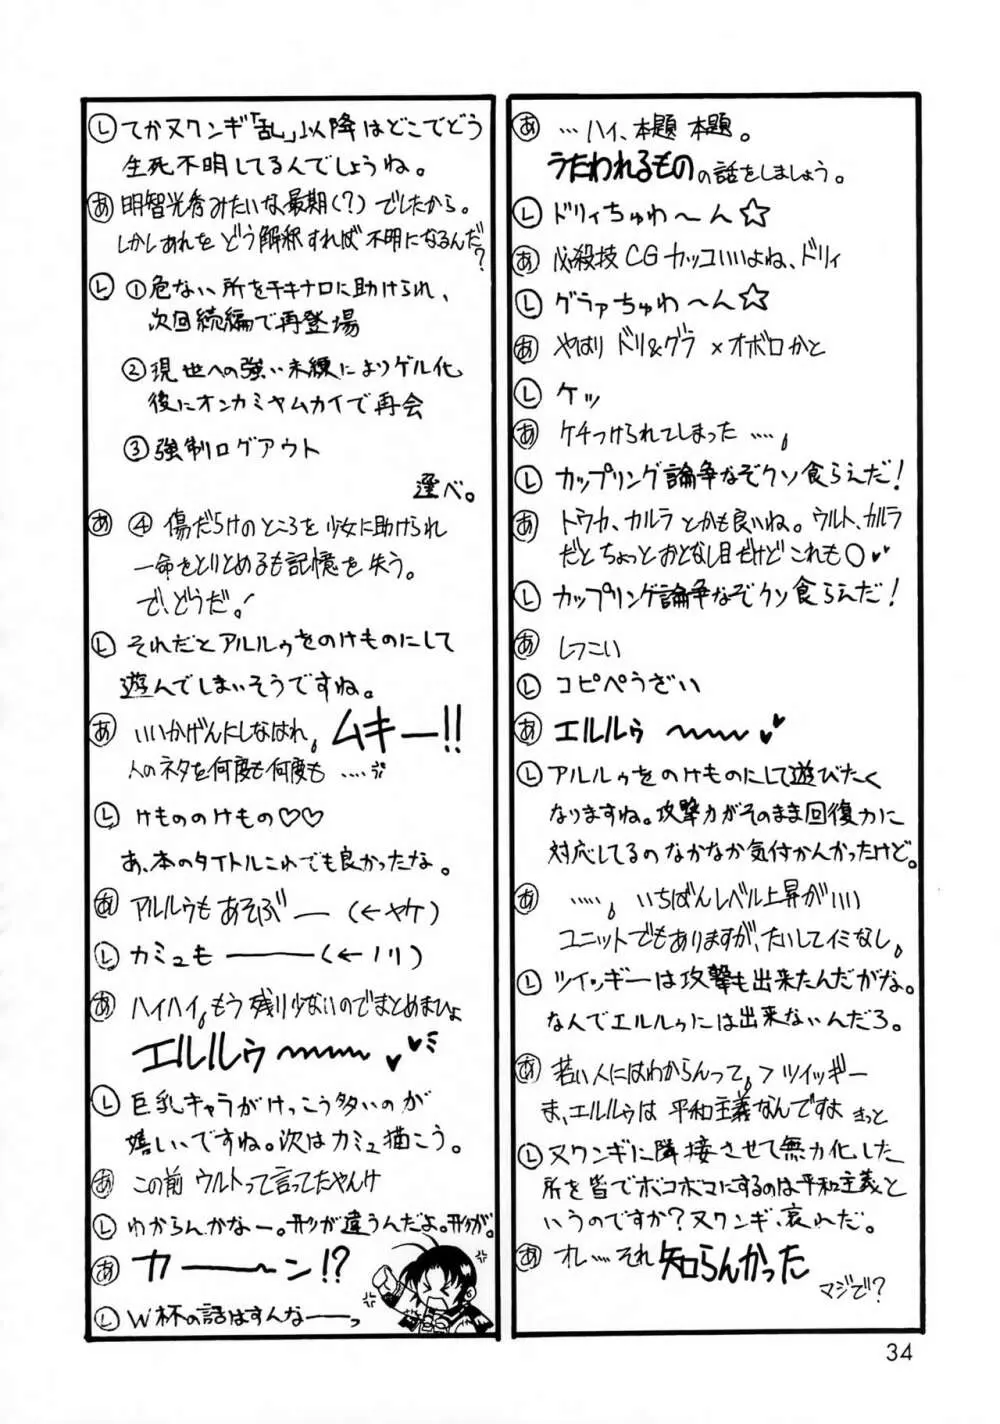 あ …ハイ、本題 本題。
うたわれるものの話をしましょう。
L ドリィちゅわ〜ん☆
あ 必殺技CGカッコいいよね、ドリィ
L グラァちゅわ〜ん☆
あ やはり ドリ&グラ×オボロかと
L ケッ
あ ケチつけられてしまった ….。
L カップリング論争なぞクソ食らえだ!
あ トウカ、カルラ とかも良いね。ウルト、カルラ
だと ちょっとおとなし目だけど これも○♥♥
L カップリング論争なぞクソ食らえだ!
あ しつこい
L コピペうざい
あ エルルゥ 〜〜〜♥
L アルルゥをのけものにして遊びたく
なりますね。攻撃力がそのまま回復力に
対応してるの なかなか気付かんかったけど。
あ …..。いちばんレベル上昇がいい
ユニットでもありますが、たいしてイミなし。
L ツインギーは攻撃も出来たんだがな。
なんでエルルゥには出来ないんだろ。
あ 若い人にはわからんって。>ツイッギー
ま、エルルゥは 平和主義なんですよ きっと
L ヌワンギに隣接させて無力化した
所を皆でボコボコにするのは平和主義と
いうのですか?ヌワンギ、哀れだ。
あ オレ….それ 知らんかった
マジで?
L てかヌワンギ「乱」以降はどこでどう
生死不明してるんでしょうね。
あ 明智光秀みたいな最期(?)でしたから。
しかしあれを どう解釈すれば 不明になるんだ?
L ①危ない所をチキナロに助けられ、
次回続編で再登場
②現世への強い未練によりゲル化
後にオンカミヤムカイで再会
③強制ログアウト
選べ。
あ ④ 傷だらけのところを少女に助けられ
一命をとりとめるも記憶を失う。
で、どうだ!
L それだとアルルゥをのけものにして
遊んでしまいそうですね。
あ いいかげんにしなはれ。ムキー!!
人のネタを何度も何度も ….
L けもののけもの♡♡
あ、本のタイトルこれでも良かったな。
あ アルルゥも あそぶ— (←ヤケ)
L カミュも ———(←ノリ)
あ ハイハイ。もう残り少ないのでまとめまひょ
エルルゥ 〜〜〜♥
L 巨乳キャラがけっこう多いのが
嬉しいですね。次はカミュ描こう。
あ この前 ウルトって言ってたやんけ
L わからんかなー。形が違うんだよ。形が。
あ カ——〜ン!?
L W杯の話はすんな——っ
34